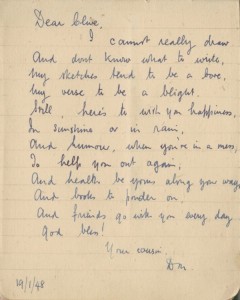 Dear Clive,
I cannot really draw
And don't know what to write,
My sketches tend to be a bore,
My verse to be a blight.
Still, here's to wish you happiness,
In sunshine or in rain,
And humour, when you're in a mess,
To help you out again,
And health be yours along your way
And books to ponder on.
And friends go with you every day
God bless!
Your cousin
19/1/48